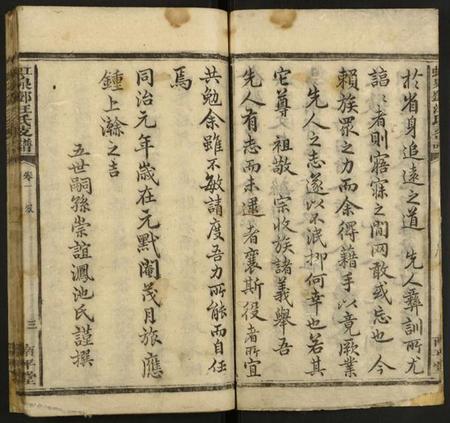 於省身追遠之道　先人彝訓所尤
諄諄者則寤寐之閒罔敢或忘也今
賴族眾之力而余得藉手以竟厥業
先人之志遂以不泯抑何幸也若其
它尊　祖敬　宗收族諸義舉吾
先人有志而未逮者襄斯役者所宜
共勉余雖不敏請度吾力所能而自任
焉
同治元年歲在元黓閹茂月旅應
鍾上澣之吉
五世嗣孫崇誼鳳池氏謹撰
氏支譜
卷一
三
堂